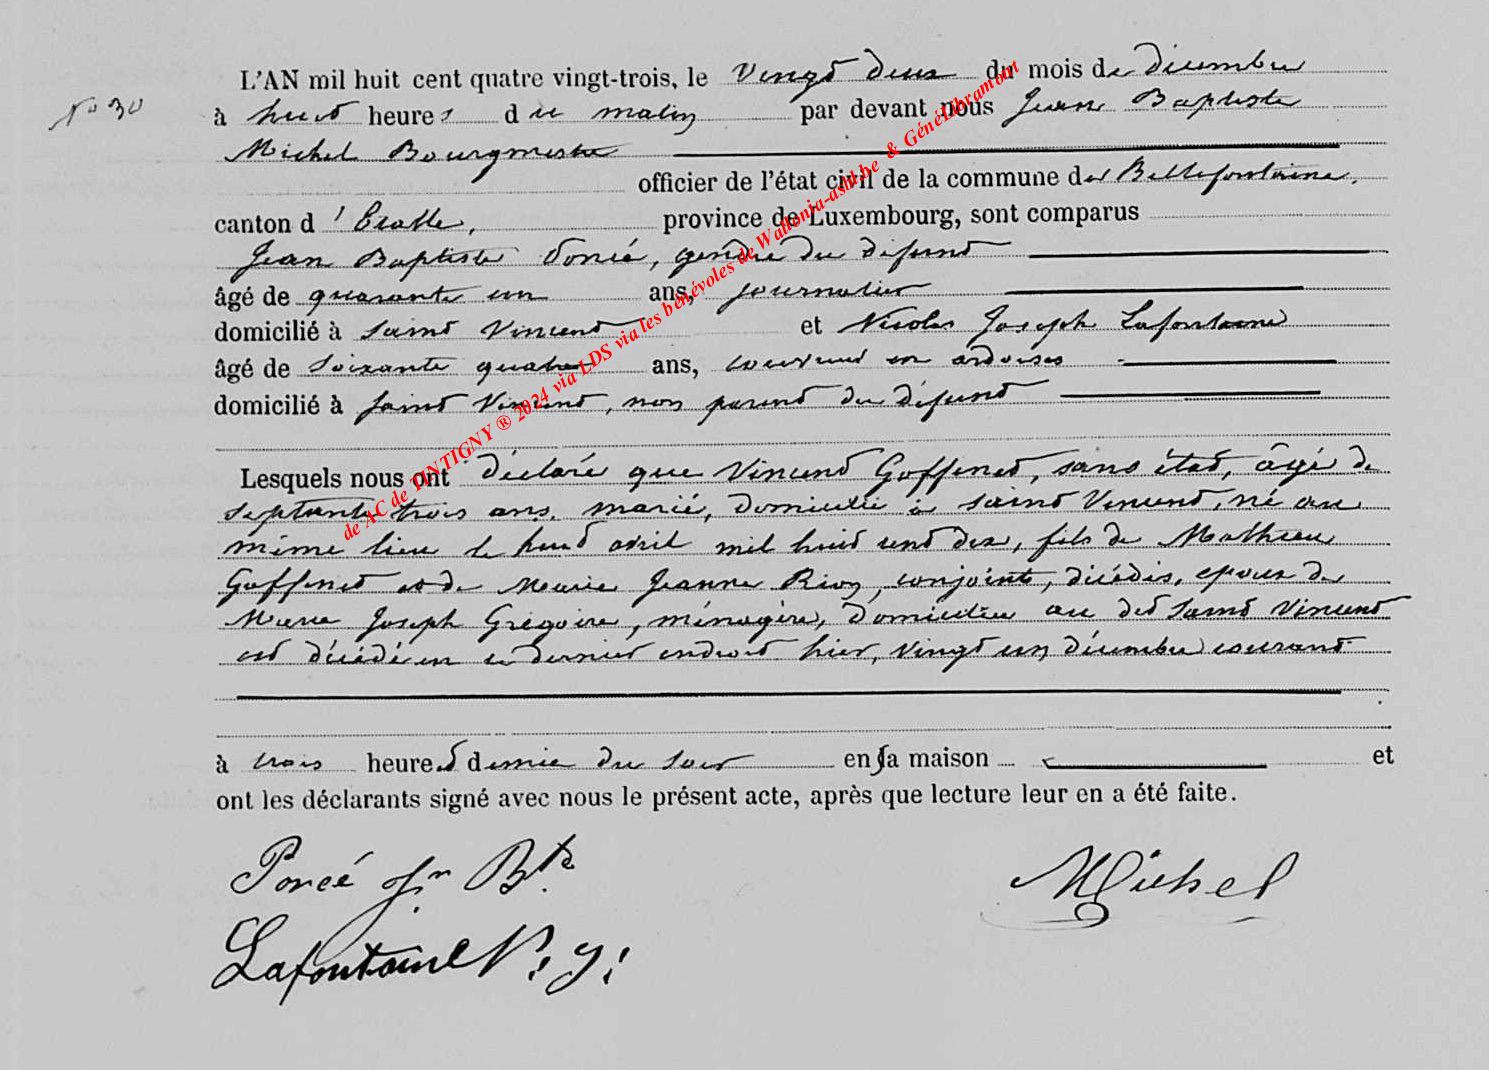 L'AN mil huit cent quatre vingt-trois, le vingt deux du mois de décembre
N° 30
à huit heures du matin par devant nous Jean Baptiste
Michel Bourgmestre
officier de l'état civil de la commune de Bellefontaine,
canton d'Etalle, province de Luxembourg, sont comparus
Jean Baptiste Poncé, gendre du défunt
âgé de quarante un ans, journalier
domicilié à Saint Vincent et Nicolas Joseph Lafontaine
âgé de soixante quatre ans, couvreur en ardoises
domicilié à Saint Vincent, non parent du défunt
Lesquels nous ont déclaré que Vincent Goffinet, sans état, âgé de
septante trois ans, marié, domicilié à Saint Vincent, né au
même lieu le huit avril mil huit cent dix, fils de Mathieu
Goffinet et de Marie Jeanne Rion, conjoints, décédés, epoux de
Marie Joseph Grégoire, ménagère, domiciliée au dit Saint Vincent
est décédé en ce dernier endroit hier, vingt un décembre courant
à trois heures et demie du soir en sa maison et
ont les déclarants signé avec nous le présent acte, après que lecture leur en a été faite.
Poncé Jn Bte
Michel
Lafontaine N. J.
de AC de TINTIGNY ® 2024 via LDS via les bénévoles de Wallonia-asbl.be & GénéLibramont